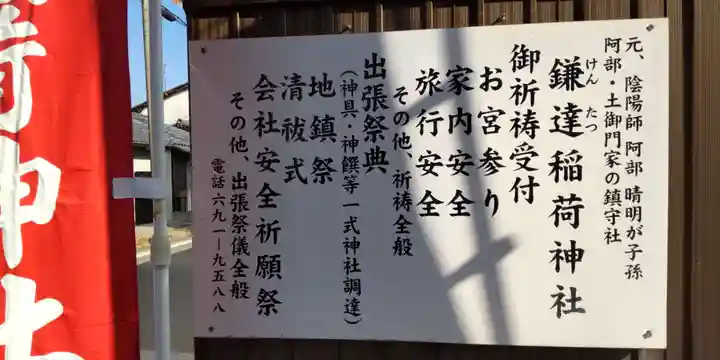 元、陰陽師 阿部 晴明が子孫
阿部・土御門家の鎮守社
鎌達稲荷神社
けん たつ
御祈祷受付
お宮参り
家内安全
旅行安全
その他、祈祷全般
出張祭典
(神具・神饌等一式神社調達)
地鎮祭
清祓式
会社安全祈願祭
その他、出張祭儀全般
電話 六九一―九五八八
荷神社